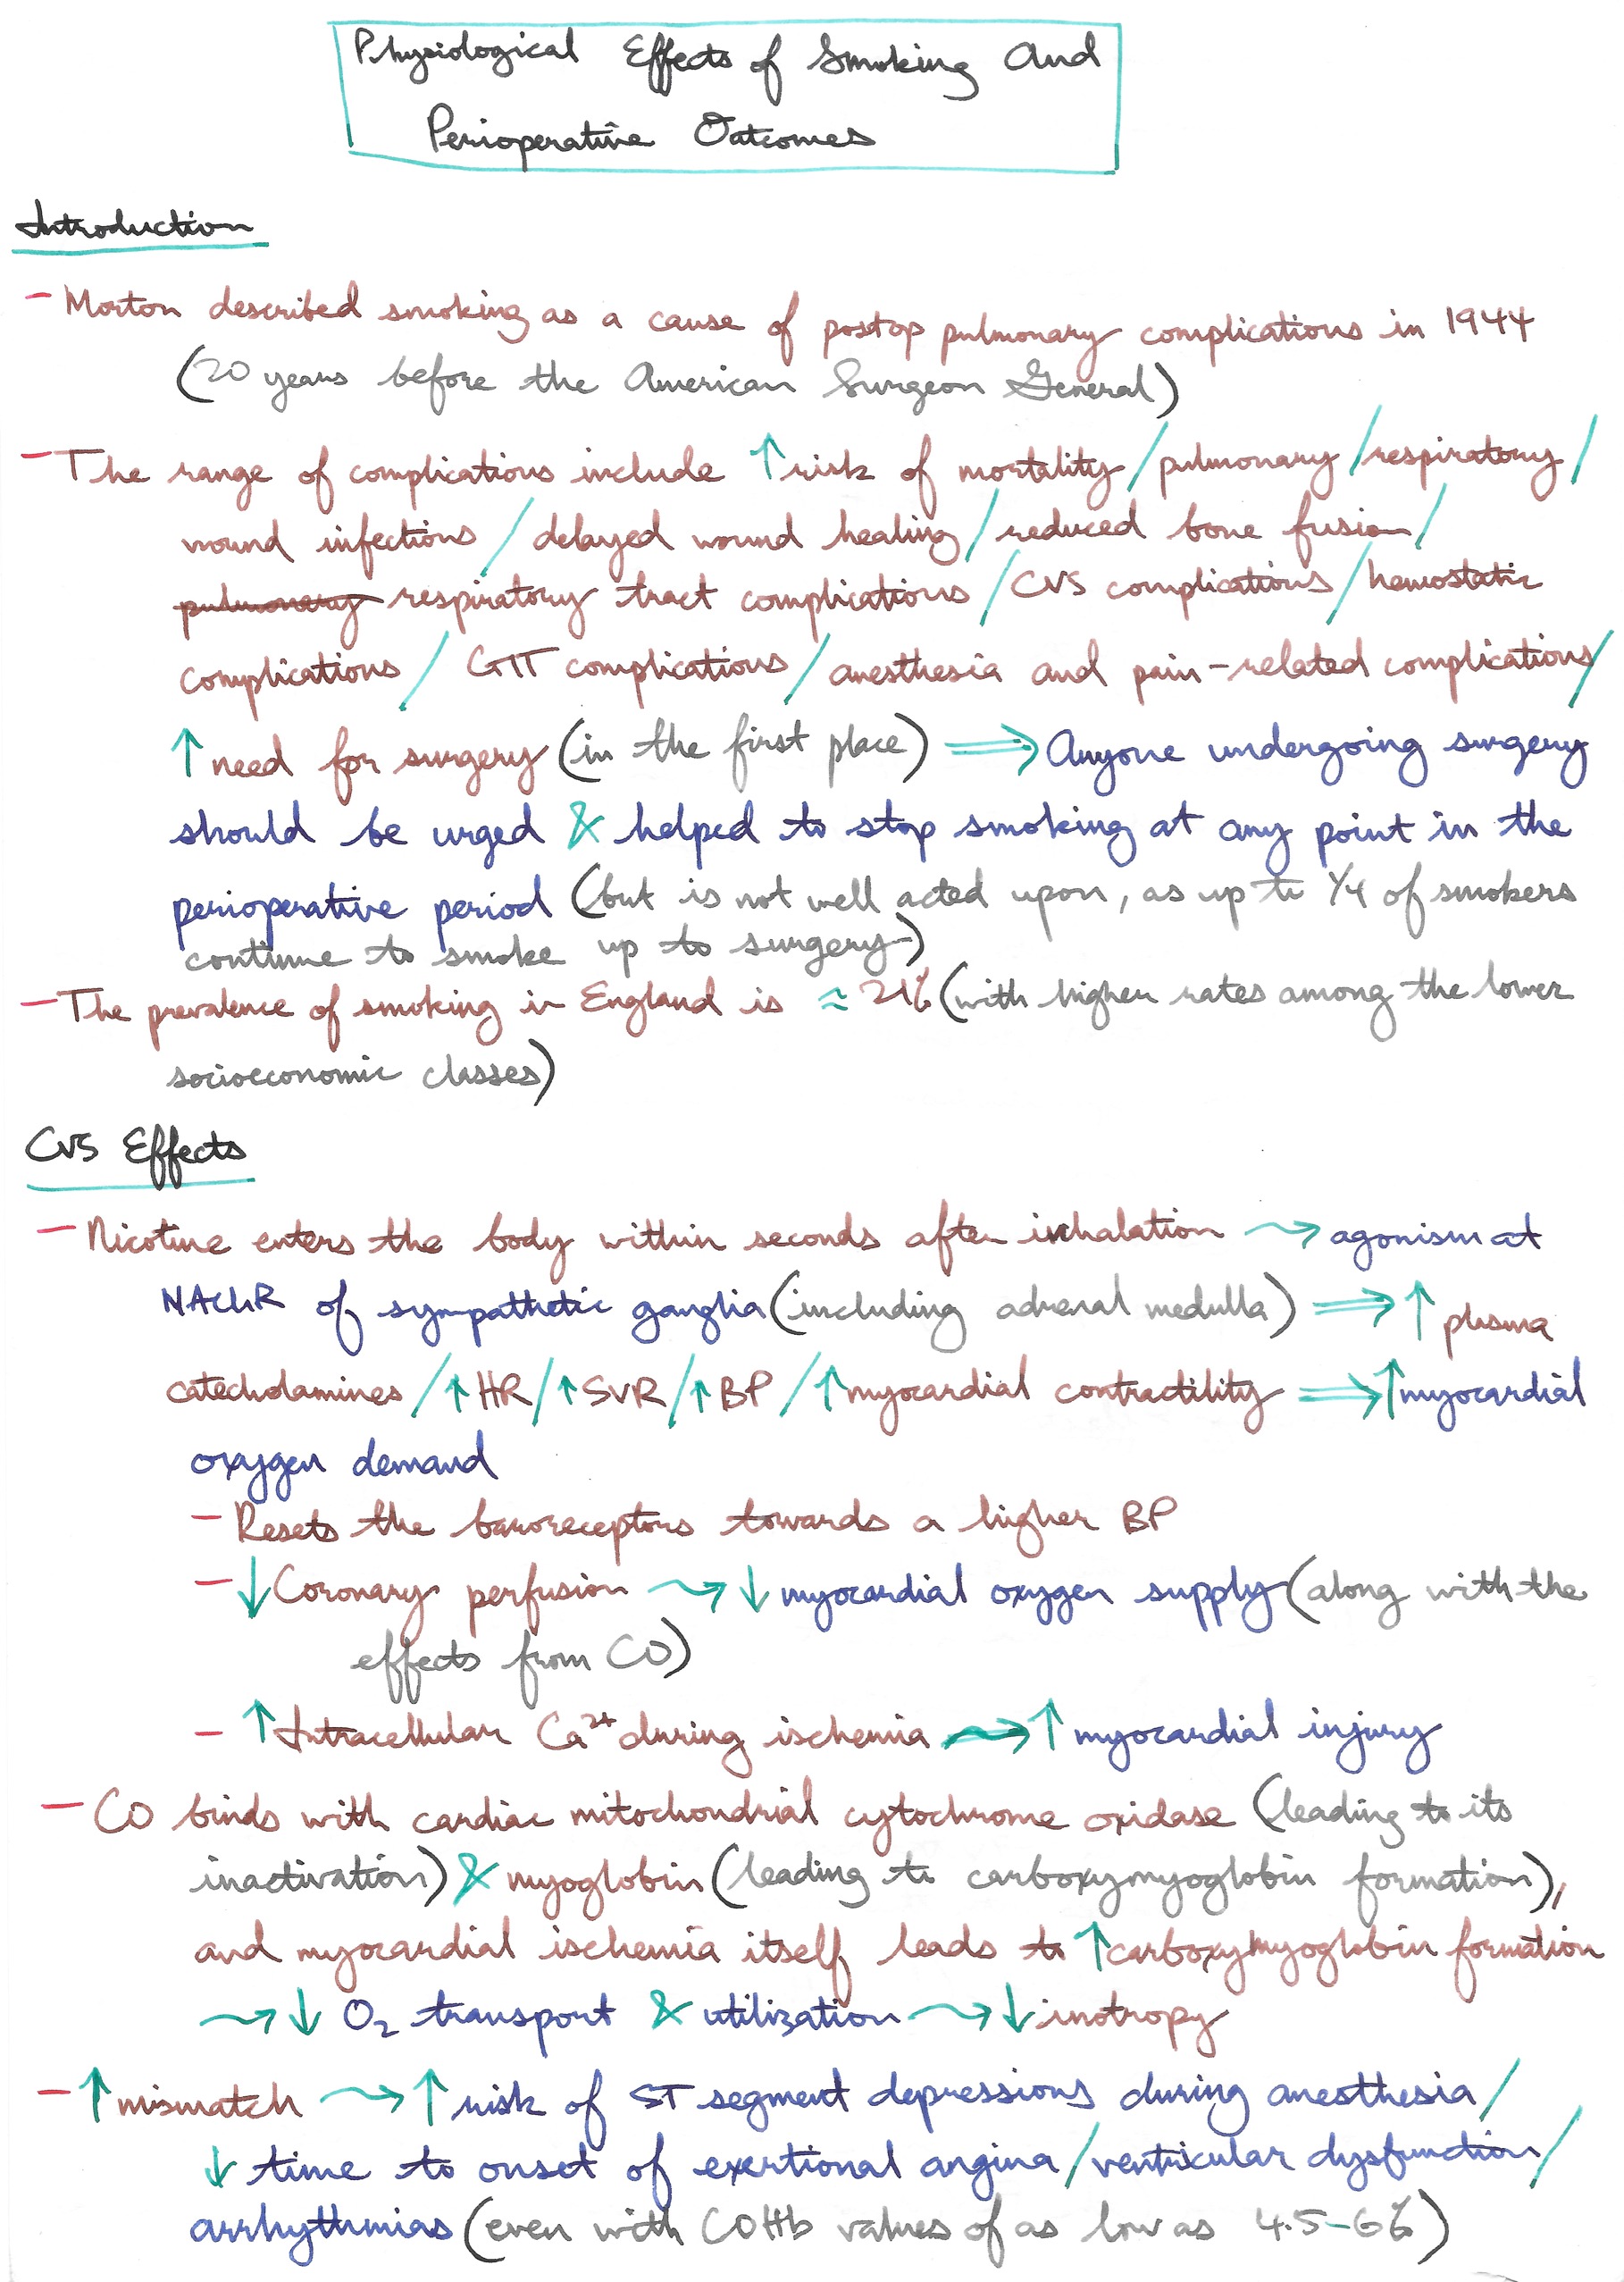 Physiological Effects of Smoking And
Perioperative Outcomes
Introduction
- Morton described smoking as a cause of postop pulmonary complications in 1944
(20 years before the American Surgeon General)
- The range of complications include ↑ risk of mortality / pulmonary / respiratory /
wound infections / delayed wound healing / reduced bone fusion /
pulmonary respiratory tract complications / CVS complications / hemostatic
complications / GIT complications / anesthesia and pain-related complications /
↑ need for surgery (in the first place) ⟹ Anyone undergoing surgery
should be urged & helped to stop smoking at any point in the
perioperative period (but is not well acted upon, as up to 1/4 of smokers
continue to smoke up to surgery)
- The prevalence of smoking in England is ≈ 21% (with higher rates among the lower
socioeconomic classes)
CVS Effects
- Nicotine enters the body within seconds after inhalation ⇝ agonism at
NAChR of sympathetic ganglia (including adrenal medulla) ⟹ ↑ plasma
catecholamines / ↑ HR / ↑ SVR / ↑ BP / ↑ myocardial contractility ⟹ ↑ myocardial
oxygen demand
- Resets the baroreceptors towards a higher BP
- ↓ Coronary perfusion ⇝ ↓ myocardial oxygen supply (along with the
effects from CO)
- ↑ Intracellular Ca²⁺ during ischemia ⇝ ↑ myocardial injury
- CO binds with cardiac mitochondrial cytochrome oxidase (leading to its
inactivation) & myoglobin (leading to carboxymyoglobin formation),
and myocardial ischemia itself leads to ↑ carboxymyoglobin formation
⇝ ↓ O₂ transport & utilization ⇝ ↓ inotropy
- ↑ mismatch ⇝ ↑ risk of ST segment depressions during anesthesia /
↓ time to onset of exertional angina / ventricular dysfunction /
arrhythmias (even with COHb values of as low as 4.5-6%)